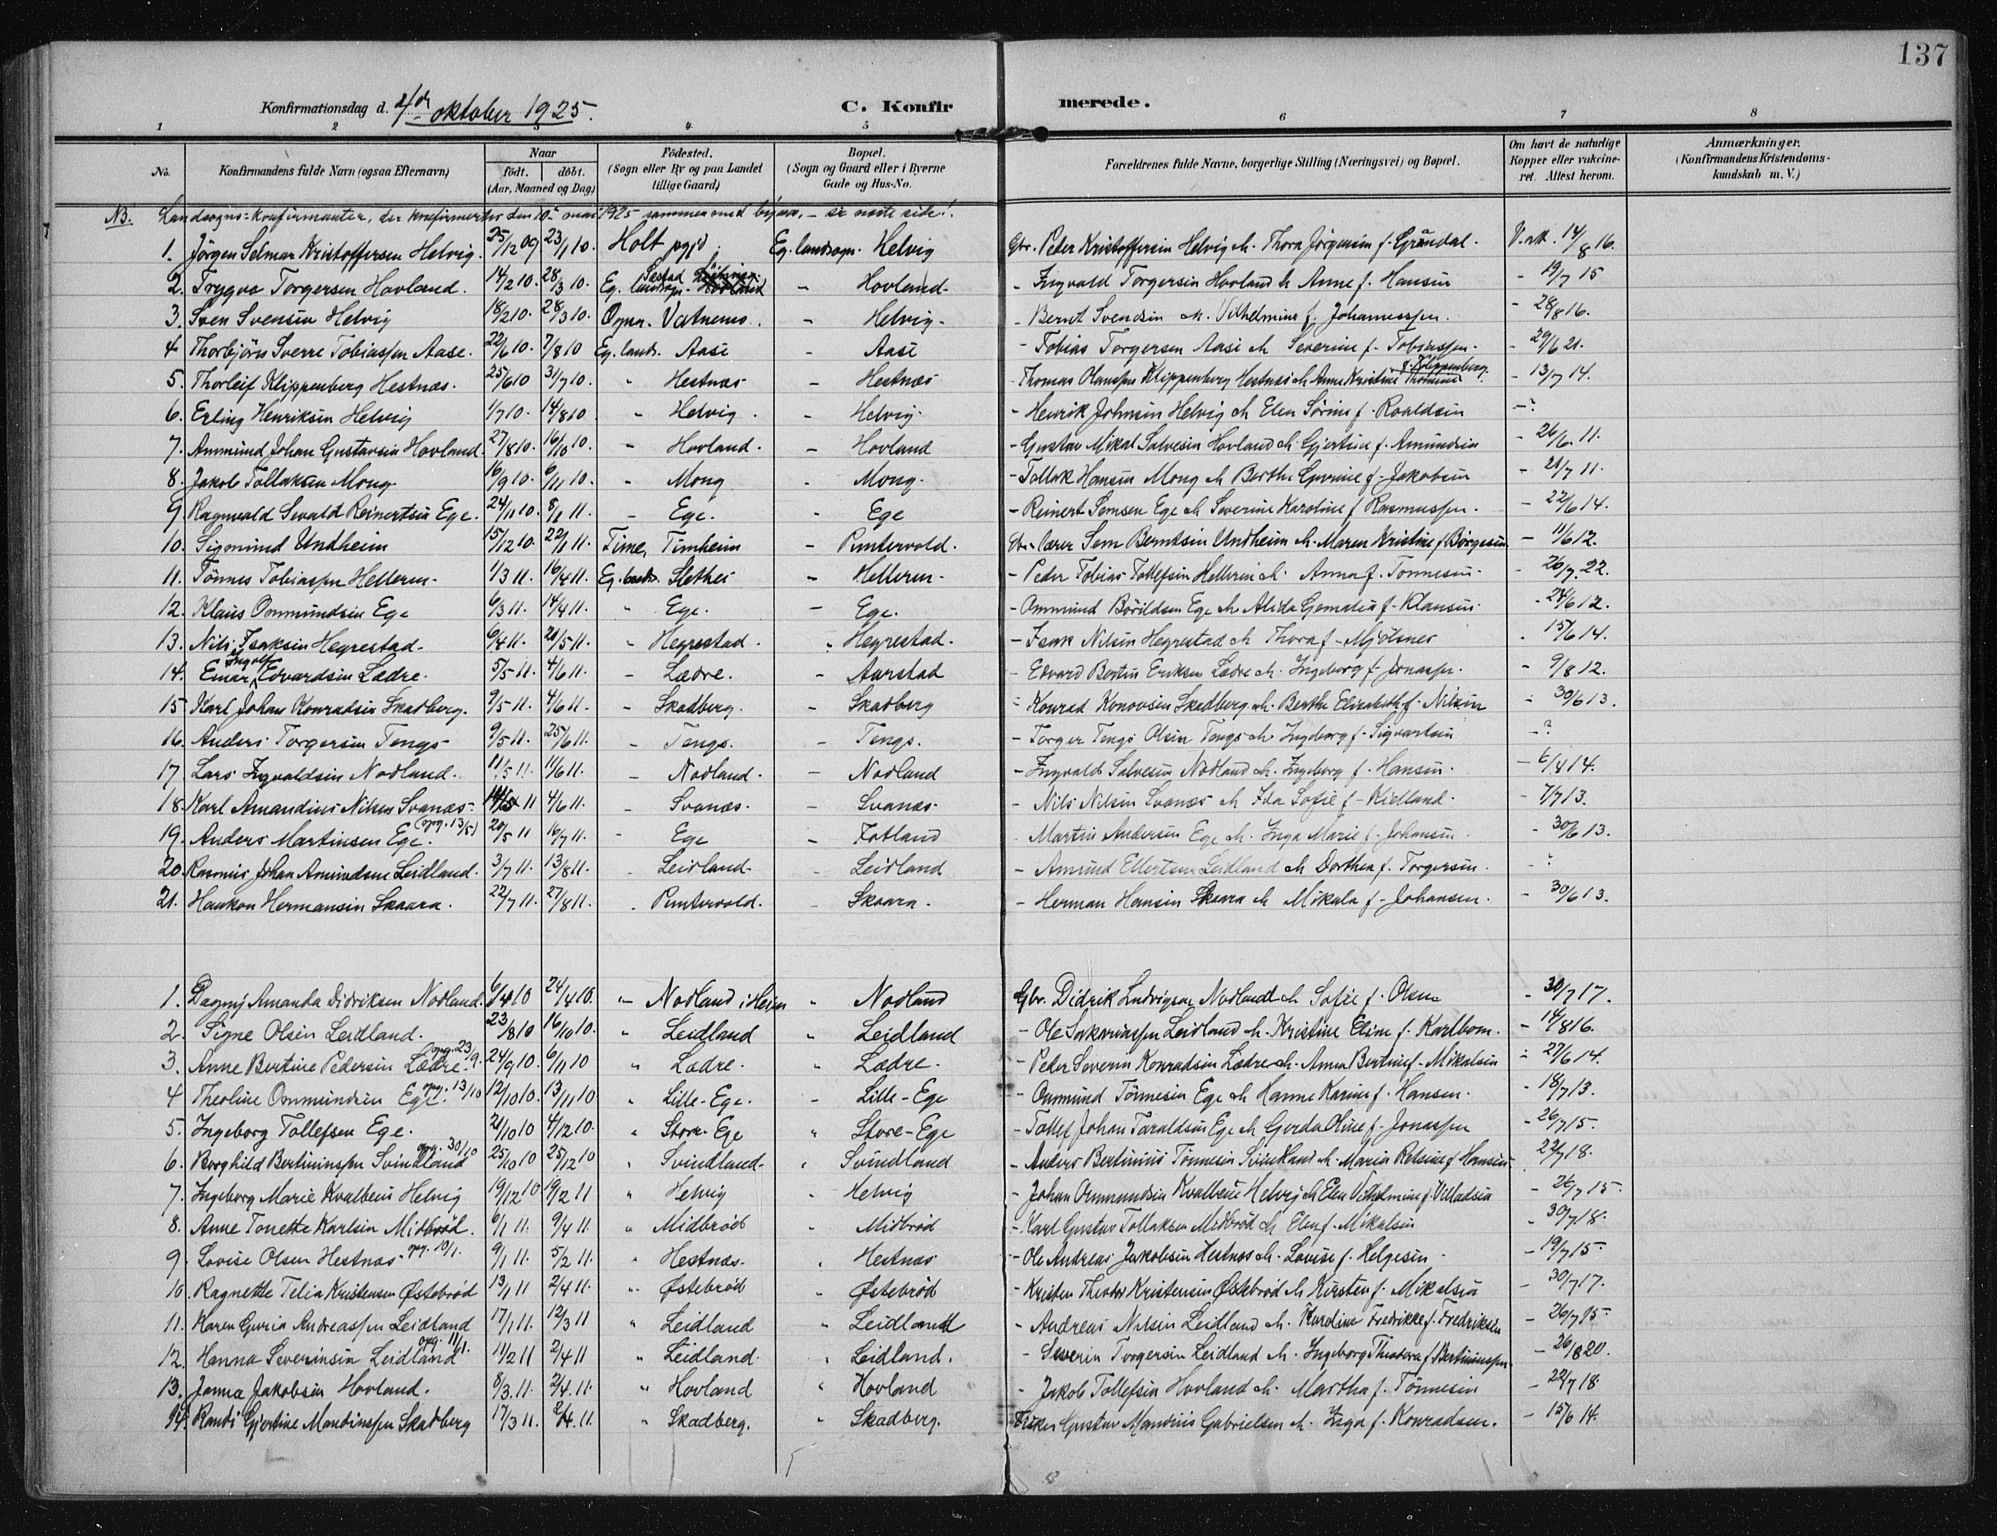 137
Konfirmationsdag d. 4de oktober 1925.
C. Konfirmerede.
1 2 3 4 5 6 7 8
No. Konfirmandens fulde Navn (ogsaa Efternavn) Naar født. døbt. (Aar, Maaned og Dag) Fødested. (Sogn eller By og paa Landet tillige Gaard) Bopæl. (Sogn og Gaard eller i Byerne Gade og Hus-No. Forældrenes fulde Navne, borgerlige Stilling (Næringsvei) og Bopæl. Om havt de naturlige Kopper eller vakcineret. Attest herom. Anmærkninger. (Konfirmandens Kristendomskundskab m. V.)
NB. Landsogns-konfirmanter, der konfirmertes den 10de mai 1925 sammen med byens, – se neste side!
1. Jörgen Selmar Kristoffersen Helvig. 25/12 09 23/1 10. Holt pgjd. Eg. landsogn Helvig Gbr. Peder Kristoffersen Helvig & Thora Jörgensen f. Gröndal. V. att. 14/8 16.
2. Trygve Torgersen Hovland. 14/2 10. 28/3 10. Eg. landsogn - Hovland - Ingvald Torgersen Hovland & Anne f. Hansen - 19/7 15
3. Sven Svensen Helvig 18/2 10. 28/3 10. Ogna. Vatnemo. - Helvig - Bernt Svendsen & Vilhelmine f. Johannessen. - 28/8 16.
4 Thorbjörn Sverre Tobiassen Aase. 22/6 10. 7/8 10 Eg. lands. Aase - Aase - Tobias Torgersen Aase & Severine f. Tobiassen - 29/6 21.
5. Thorleif Klippenberg Hestnæs. 25/6 10 31/7 10. " Hestnæs - Hestnæs - Thomas Olaussen Klippenberg Hestnæs & Anne Kristine f. Klippenberg. - 13/7 14.
6. Erling Henriksen Helvig 1/7 10. 14/8 10. - Helvig. - Helvig. - Henrik Johnsen Helvig & Elen Sörine f. Roaldsen - ?
7. Ammund Johan Gustavsen Hovland 27/8 10. 16/10 10. - Hovland. - Hovland - Gustav Mikal Salvesen Hovland & Gjertine f. Amundsen - 26/6 11.
8. Jakob Tollaksen Mong 16/9 10. 6/11 10. - Mong - Mong. - Tollak Hansen Mong & Berthe Gurine f. Jakobsen - 21/7 11.
9. Ragnvald Sevald Reinertsen Ege. 24/11 10. 8/1 11. - Ege. - Ege - Reinert Semsen Ege & Severine Karoline f Rasmussen. - 22/6 14.
10. Sigmund Undheim 15/12 10. 22/1 11. Time, Timheim - Puntervold. Gbr. Lærer Sem Berntsen Undheim & Maren Kristine f. Börgesen - 11/6 12.
11. Tönnes Tobiassen Helleren. 1/3 11. 16/4 11. Eg. lands. Slethei - Helleren - Peder Tobias Tollefsen Helleren & Anna f. Tönnesen - 26/7 22.
12. Klaus Ommundsen Ege 6/3 11. 14/4 11. " Ege. - Ege. - Ommund Börildsen Ege & Alida Gematea f. Klausen - 24/6 12.
13. Nils Isaksen Hegrestad. 6/4 11. 21/5 11. " Hegrestad. " Hegrestad. - Isak Nilsen Hegrestad & Thora f. Mjölsnes - 15/6 14.
14. Einar Ingolf Edvardsen Lædre. 5/5 11. 4/6 11. - Lædre. - Aarstad - Edvard Bertin Eriksen Lædre & Ingeborg f. Jonassen. - 9/8 12.
15. Karl Johan Konradsen Skadberg. 9/5 11. 4/6 11. - Skadberg. - Skadberg - Konrad Konovsen Skadberg & Berthe Elisabeth f. Nilsen - 30/6 13.
16. Anders Torgersen Tengs 9/5 11. 25/6 11. - Tengs. - Tengs. - Torger Tengs Olsen Tengs & Ingeborg f. Sigvartsen - ?
17. Lars Ingvaldsen Nodland. 11/5 11. 11/6 11. - Nodland. - Nodland - Ingvald Salvesen Nodland & Ingeborg f. Hansen. - 6/4 14.
18. Karl Amandius Nilsen Svanæs. (opg. 13/5) 14/5 11 4/6 11. - Svanæs. - Svanæs. - Nils Nilsen Svanæs & Ida Sofie f. Kielland. - 7/7 13.
19. Anders Martinsen Ege. 20/5 11 16/7 11. - Ege - Fotland - Martin Andersen Ege & Inga Marie f. Johansen. - 30/6 13.
20. Rasmus Johan Amundsen Leidland. 3/7 11. 13/8 11. - Leidland. - Leidland - Amund Ellertsen Leidland & Dorthea f. Torgersen. - ?
21. Haakon Hermansen Skaara. 22/7 11. 27/8 11. - Puntervold. - Skaara. - Herman Hansen Skaara & Mikala f. Johansen. - 30/6 13.
1. Dagny Amanda Didriksen Nodland. 6/4 10 24/4 10. " Nodland i Heien " Nodland Gbr. Didrik Ludvigsen Nodland & Sofie f. Olsen - 30/7 17.
2. Signe Olsen Leidland. 23/8 10 16/10 10. " Leidland " Leidland - Ole Sakariassen Leidland & Kristine Eline f. Karlhom. - 14/8 16.
3. Anne Bertine Pedersen Lædre. opg. 23/9. 24/9 10. 6/11 10 " Lædre. - Lædre. - Peder Severin Konradsen Lædre & Anna Bertine f. Mikalsen - 27/6 14.
4 Theoline Ommundsen Ege. opg. 13/10 12/10 10. 13/11 10 " Lille-Ege. - Lille-Ege - Ommund Tönnesen Ege & Hanne Karine f. Hansen. - 18/7 13.
5. Ingeborg Tollefsen Ege. 21/10 10 4/12 10. " Store-Ege " Store-Ege - Tollef Johan Taraldsen Ege & Gerda Oline f. Jonassen - 26/7 15.
6. Borghild Bertinussen Svindland opg. 30/10 25/10 10 25/12 10 " Svindland. " Svindland - Anders Bertinius Tönnesen Svindland & Maria Retsine f. Hansen - 22/7 18.
7. Ingeborg Marie Kvalbein Helvig 19/12 10 19/2 11 " Helvig " Helvig - Johan Ommundsen Kvalbein Helvig & Elen Vilhelmine f. Villadsen - 26/7 15.
8. Anne Tonette Karlsen Midbrød. 6/1 11. 9/4 11. " Midbrød " Midbrød - Karl Gustav Tollaksen Midbrød & Elen f. Mikalsen - 30/7 18.
9. Lovise Olsen Hestnæs. opg. 10/1. 9/1 11. 5/2 11. " Hestnæs. " Hestnæs - Ole Andreas Jakobsen Hestnæs & Lovise f. Helgesen. - 19/7 15.
10 Ragnette Telia Kristensen Østebrød 13/1 11 2/4 11. " Østebrød " Østebrød - Kristen Theodor Kristensen Østebrød & Kirsten f. Mikalsen - 30/7 17.
11. Karen Gurie Andreassen Leidland 17/1 11. 12/3 11 " Leidland " Leidland - Andreas Nilsen Leidland & Karoline Fredrikke f. Fredriksen - 26/7 15
12. Hanna Severinsen Leidland opg. 11/1. 11/2 11 2/4 11 " Leidland. " Leidland. - Severin Torgersen Leidland & Ingeborg Theodora f. Bertinussen - 26/8 20.
13. Janna Jakobsen Hovland. 8/3 11. 2/4 11. " Hovland " Hovland - Jakob Tollefsen Hovland & Martha f. Tönnesen - 22/7 18.
14. Randi Gjertine Mandiussen Skadberg 17/3 11. 2/4 11. " Skadberg. " Skadberg. Fisker Gustav Mandius Gabrielsen & Inga f. Konradsen. - 15/6 14.